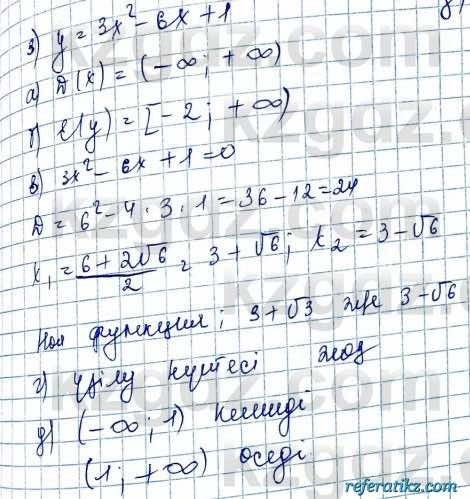 з) y = 3x² - 6x + 1
а) D(x) = (-∞; +∞)
б) E(y) = [-2; +∞)
в) 3x² - 6x + 1 = 0
D = 6² - 4 · 3 · 1 = 36 - 12 = 24
x₁ = (6 + 2√6)/2 = 3 + √6; x₂ = 3 - √6
Ноль функция; 3 + √3 және 3 - √6
г) үзілу нүктесі жоқ
д) (-∞; 1) кемиді
(1; +∞) өседі
kzgdz.com
referatikz.com